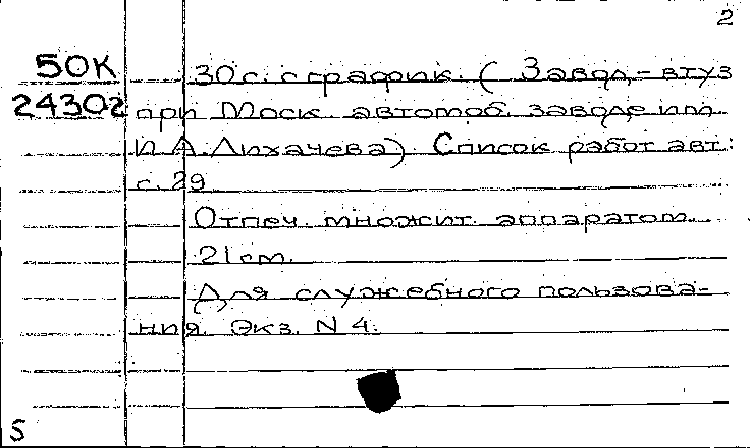 2
50К 30 с. с график. ( Завод-втуз
24302 при Моск. автомоб. заводе им.
И.А.Лихачева). Список работ авт.:
с. 29
Отпеч. множит. аппаратом.
21 см.
Для служебного пользова-
ния. Экз. N 4.
5